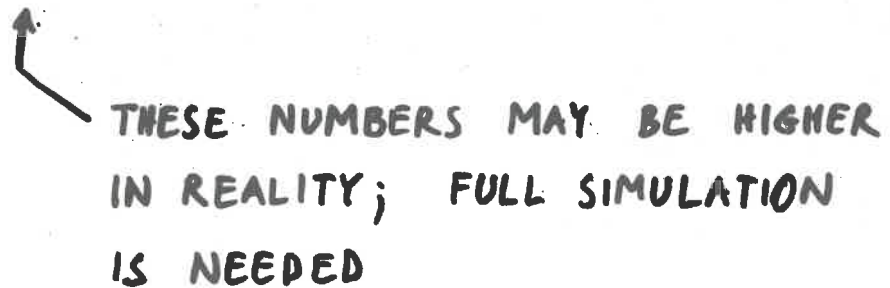 THESE NUMBERS MAY BE HIGHER
IN REALITY; FULL SIMULATION
IS NEEDED